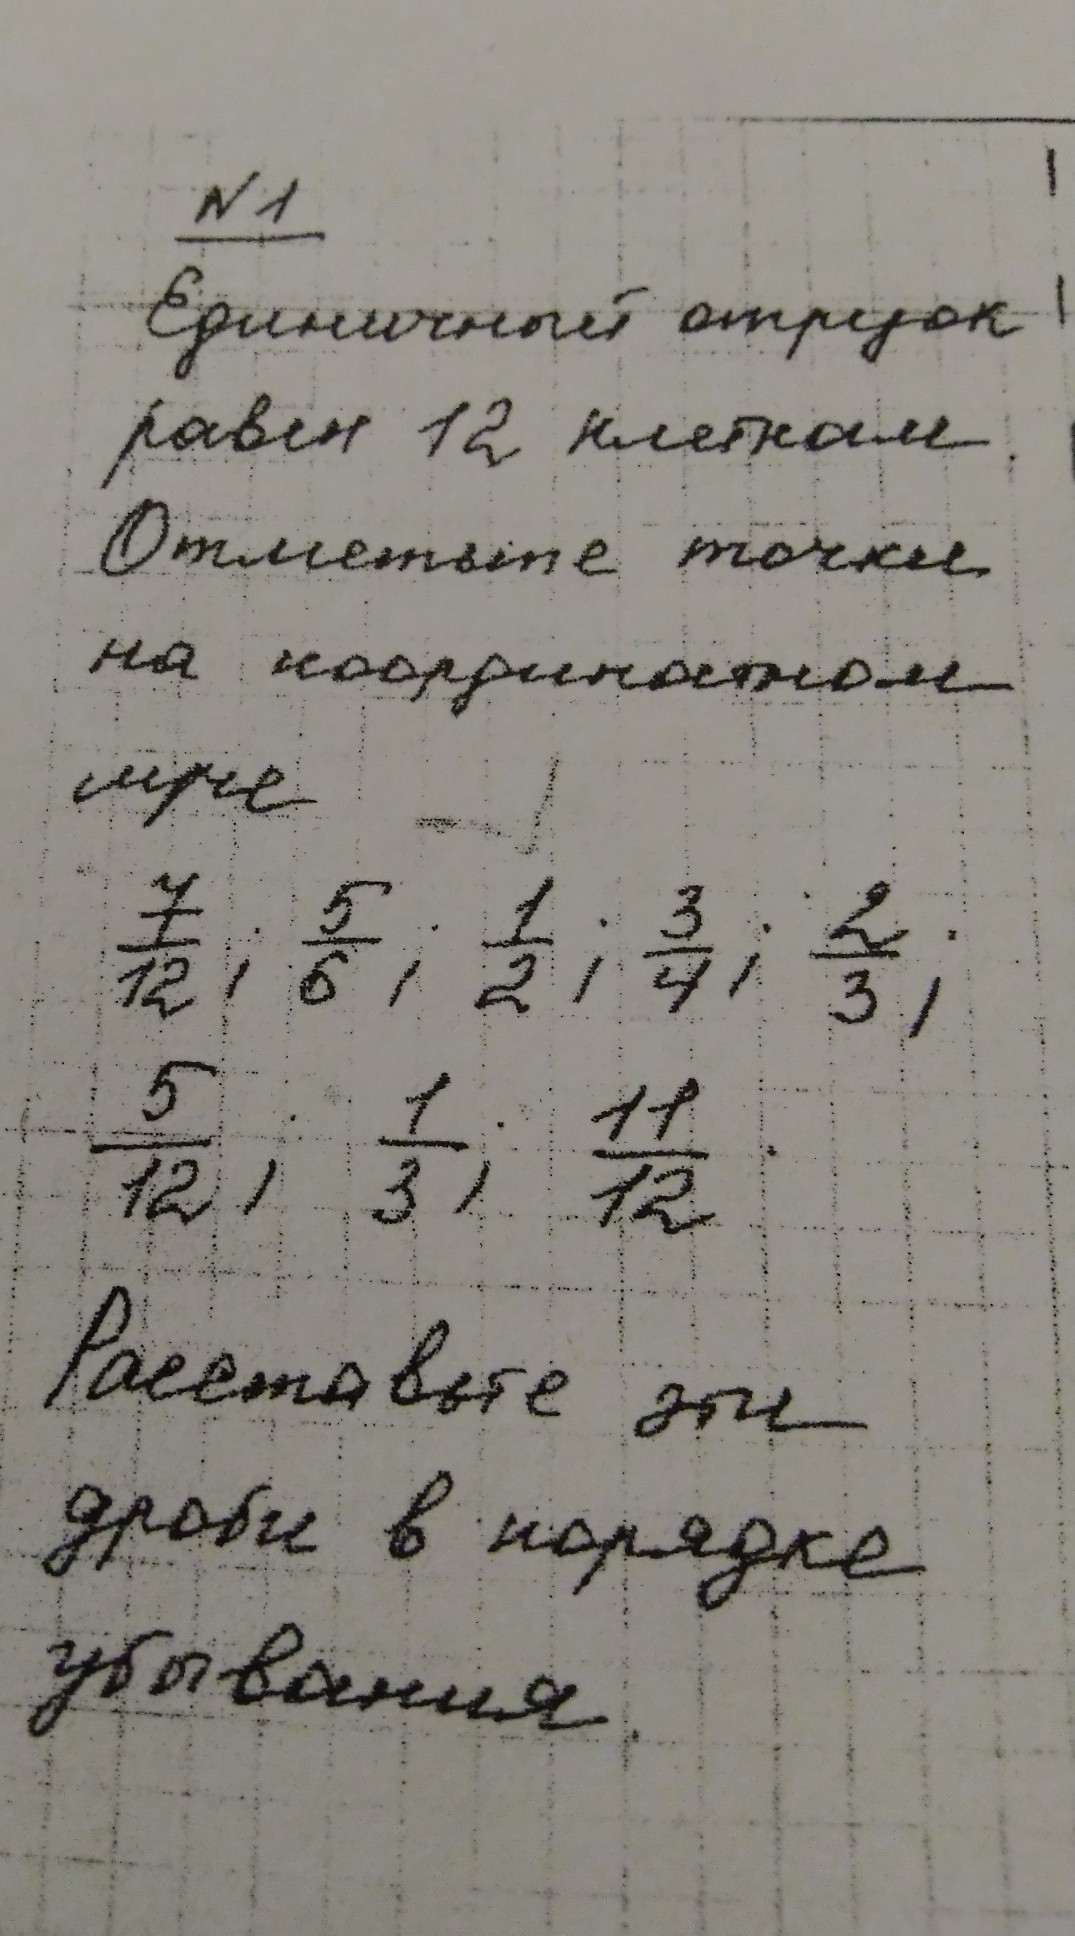 N1
Единичный отрезок
равен 12 клеткам.
Отметьте точки
на координатном
луче
7/12; 5/6; 1/2; 3/4; 2/3;
5/12; 1/3; 11/12
Расставьте эти
дроби в порядке
убывания.